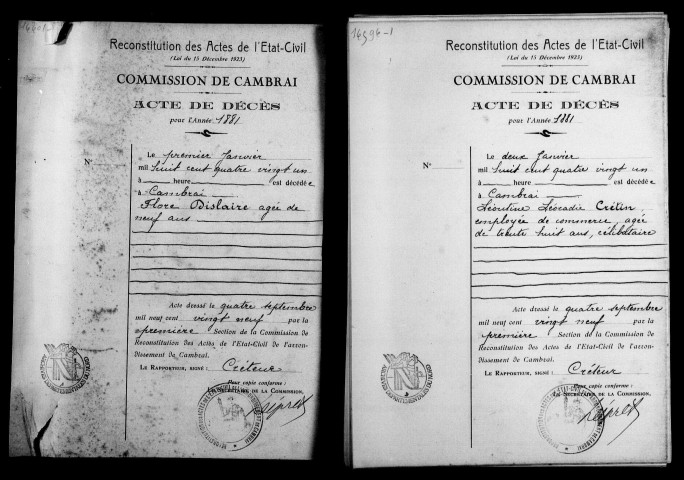 Reconstitution des Actes de l'Etat-Civil
(Loi du 15 Décembre 1923)
COMMISSION DE CAMBRAI
ACTE DE DÉCÈS
pour l'Année 1881
N°
Le premier Janvier
mil huit cent quatre vingt un
à heure est décédée
à Cambrai
Flore Dislaire agée de
neuf ans
Acte dressé le quatre septembre
mil neuf cent vingt neuf par la
première Section de la Commission de
Reconstitution des Actes de l'Etat-Civil de l'arron-
dissement de Cambrai.
LE RAPPORTEUR, SIGNÉ : Créteur
Pour copie conforme :
LE SECRÉTAIRE DE LA COMMISSION,
16596-1
Reconstitution des Actes de l'Etat-Civil
(Loi du 15 Décembre 1923)
COMMISSION DE CAMBRAI
ACTE DE DÉCÈS
pour l'Année 1881
N°
Le deux Janvier
mil huit cent quatre vingt un
à heure est décédée
à Cambrai
Léontine Léocadie Crétin
employée de commerce, agée
de trente huit ans, célibataire
Acte dressé le quatre septembre
mil neuf cent vingt neuf par la
première Section de la Commission de
Reconstitution des Actes de l'Etat-Civil de l'arron-
dissement de Cambrai.
LE RAPPORTEUR, SIGNÉ : Créteur
Pour copie conforme :
LE SECRÉTAIRE DE LA COMMISSION,